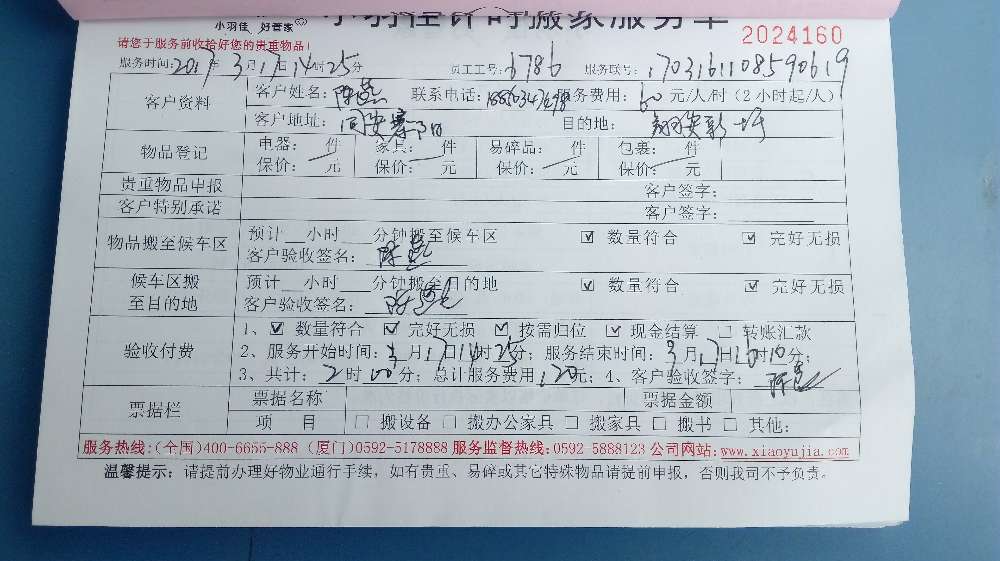 小羽佳 好管家
小羽佳计时搬家服务单
2024160
请您于服务前收拾好您的贵重物品!
服务时间:2017年3月17日14时25分 员工工号:6786 服务联号:1703161108590619
客户资料
客户姓名:陈 联系电话: 服务费用:60元/人/时(2小时起/人)
客户地址:同安 目的地:翔安彭
物品登记
电器: 件 家具: 件 易碎品: 件 包裹: 件
保价: 元 保价: 元 保价: 元 保价: 元
贵重物品申报 客户签字:
客户特别承诺 客户签字:
物品搬至候车区
预计 小时 分钟搬至候车区 ☑ 数量符合 ☑ 完好无损
客户验收签名:陈
候车区搬至目的地
预计 小时 分钟搬至目的地 ☑ 数量符合 ☑ 完好无损
客户验收签名:陈
验收付费
1、☑ 数量符合 ☑ 完好无损 ☑ 按需归位 ☑ 现金结算 □ 转账汇款
2、服务开始时间:3月17日14时25分;服务结束时间:3月17日16时10分;
3、共计:2时00分;总计服务费用120元;4、客户验收签字:陈
票据栏
票据名称 票据金额
项 目 □ 搬设备 □ 搬办公家具 □ 搬家具 □ 搬书 □ 其他:
服务热线:(全国)400-6655-888 (厦门)0592-5178888 服务监督热线:0592-5888123 公司网站:www.xiaoyujia.com
温馨提示:请提前办理好物业通行手续,如有贵重、易碎或其它特殊物品请提前申报,否则我司不予负责。